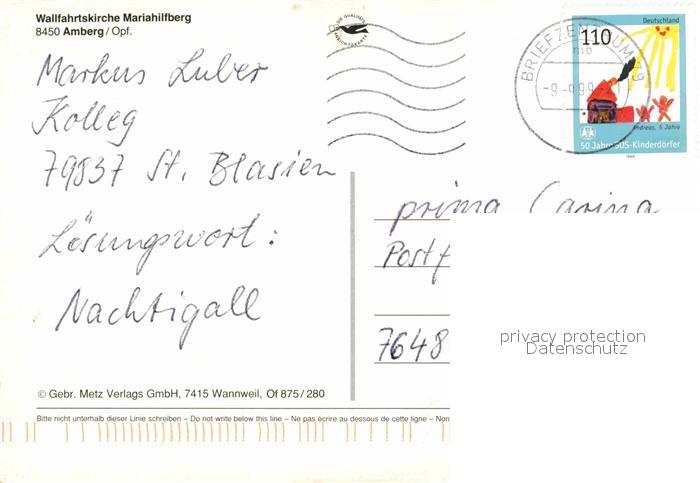 Wallfahrtskirche Mariahilfberg
8450 Amberg/Opf.
Markus Luber
Kolleg
79837 St. Blasien
Lösungswort:
Nachtigall
© Gebr. Metz Verlags GmbH, 7415 Wannweil, Of 875/280
Bitte nicht unterhalb dieser Linie schreiben – Do not write below this line – Ne pas écrire au dessous de cette ligne – Non
BRIEFZENTRUM
Deutschland
110
Andreas, 5 Jahre
50 Jahre SOS-Kinderdörfer
prima Carina
Postf
7648
privacy protection
Datenschutz